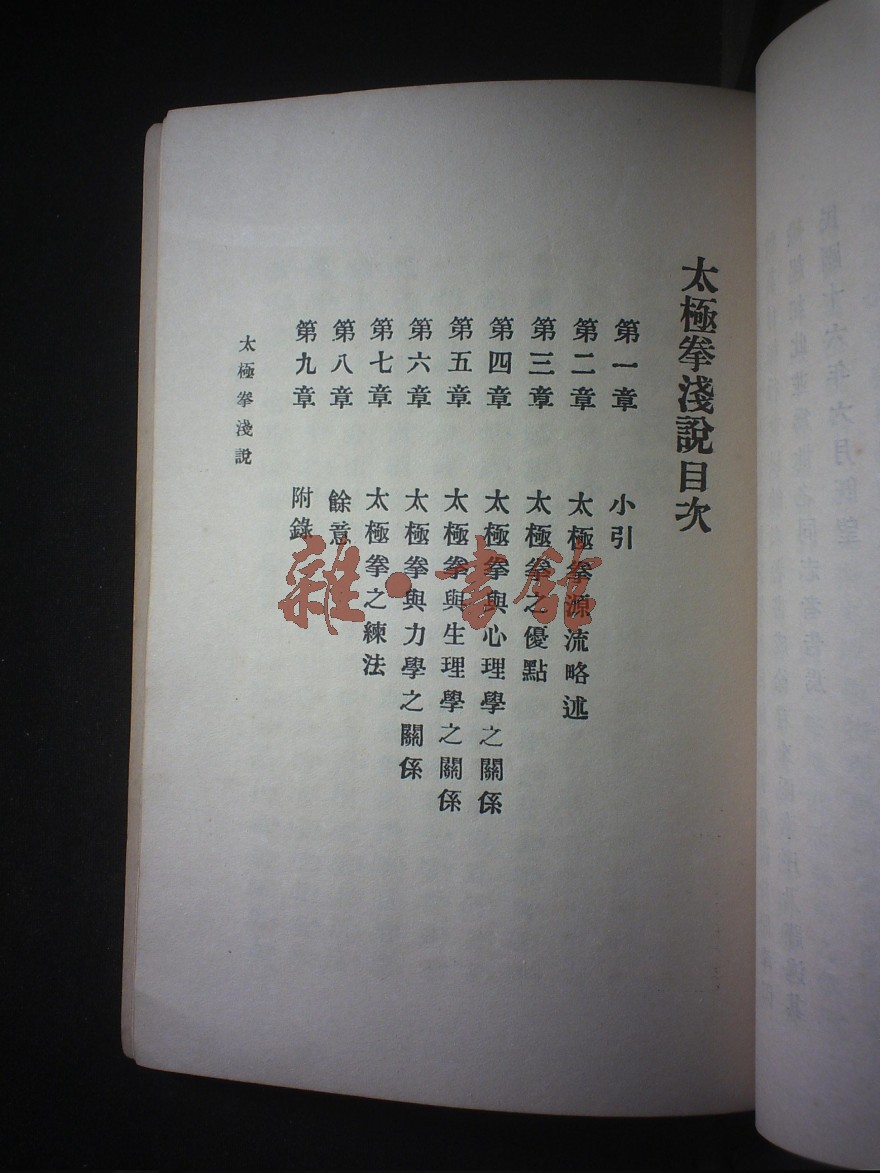 太極拳淺說目次
第一章　小引
第二章　太極拳源流略述
第三章　太極拳之優點
第四章　太極拳與心理學之關係
第五章　太極拳與生理學之關係
第六章　太極拳與力學之關係
第七章　太極拳之練法
第八章　餘意
第九章　附錄
太極拳淺說
雜·書館